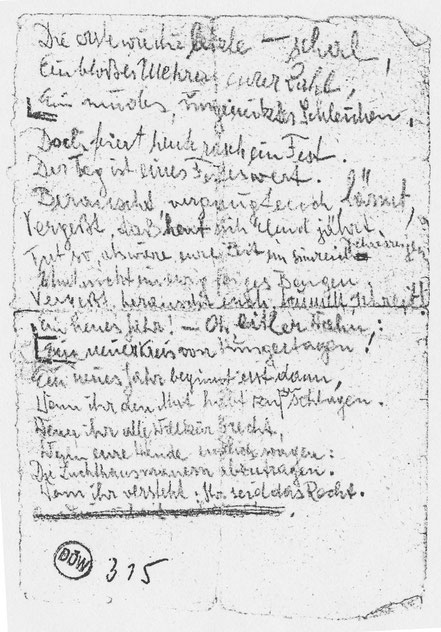 Die erste wie die letzte – schal,
Ein bloßes Mehren eurer Zahl,
Ein müdes, ungenütztes Schleichen.
Doch feiert heute rasch ein Fest.
Der Tag ist eines Festes wert.
Berauscht, vergnügt euch lärmt,
Vergeßt, daß heut sich Elend jährt.
Tut so, als wäre eure Zeit ein sinnreich
Vergeßt, berauscht euch,
Ein neues Jahr! – Oh, eitler Wahn,:
Ein neuer Kreis von Hungertagen.
Ein neues Jahr beginnt erst dann,
Wenn ihr den Mut habt zum Schlagen.
Wenn ihr alle Willkür brecht,
Wenn eure Hände endlich wagen:
Die Zuchthausmauern abzutragen.
Wenn ihr versteht: Ihr seid das Recht.
DÖW
315